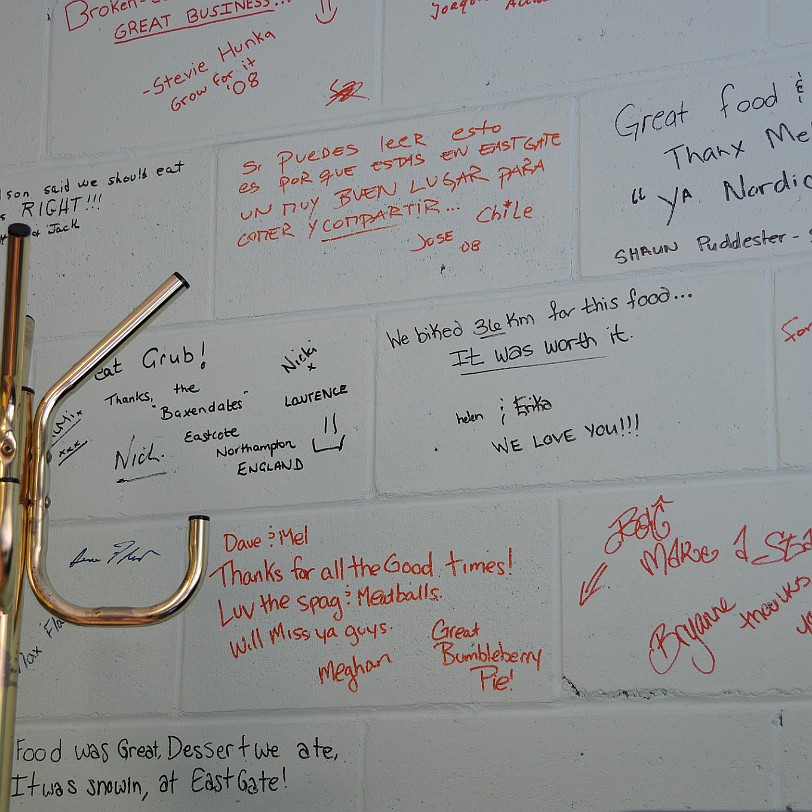 Broken-
GREAT BUSINESS...
-Stevie Hunka
Grow for it
'08
son said we should eat
RIGHT!!!
Jack
Si PUEDES leer esto
es PORQUE ESTAS EN EASTGATE
UN MUY BUEN LUGAR PARA
COMER Y COMPARTIR... Chile
JOSE 08
Great food &
Thanx Me
" YA Nordic
SHAUN Puddester -
eat Grub!
Thanks, the
"Baxendales"
Eastcote
Northampton
ENGLAND
Nick.
Nicki
x
LAURENCE
xxx
We biked 36 Km for this food...
It was worth it.
helen & Erika
WE LOVE YOU!!!
For
Dave & Mel
Thanks for all the Good times!
Luv the spag & Meatballs.
Will Miss ya guys.
Meghan
Great
Bumbleberry
Pie!
MAKE
Bryanne thanks
Food was Great, Dessert we ate,
It was snowin, at EastGate!